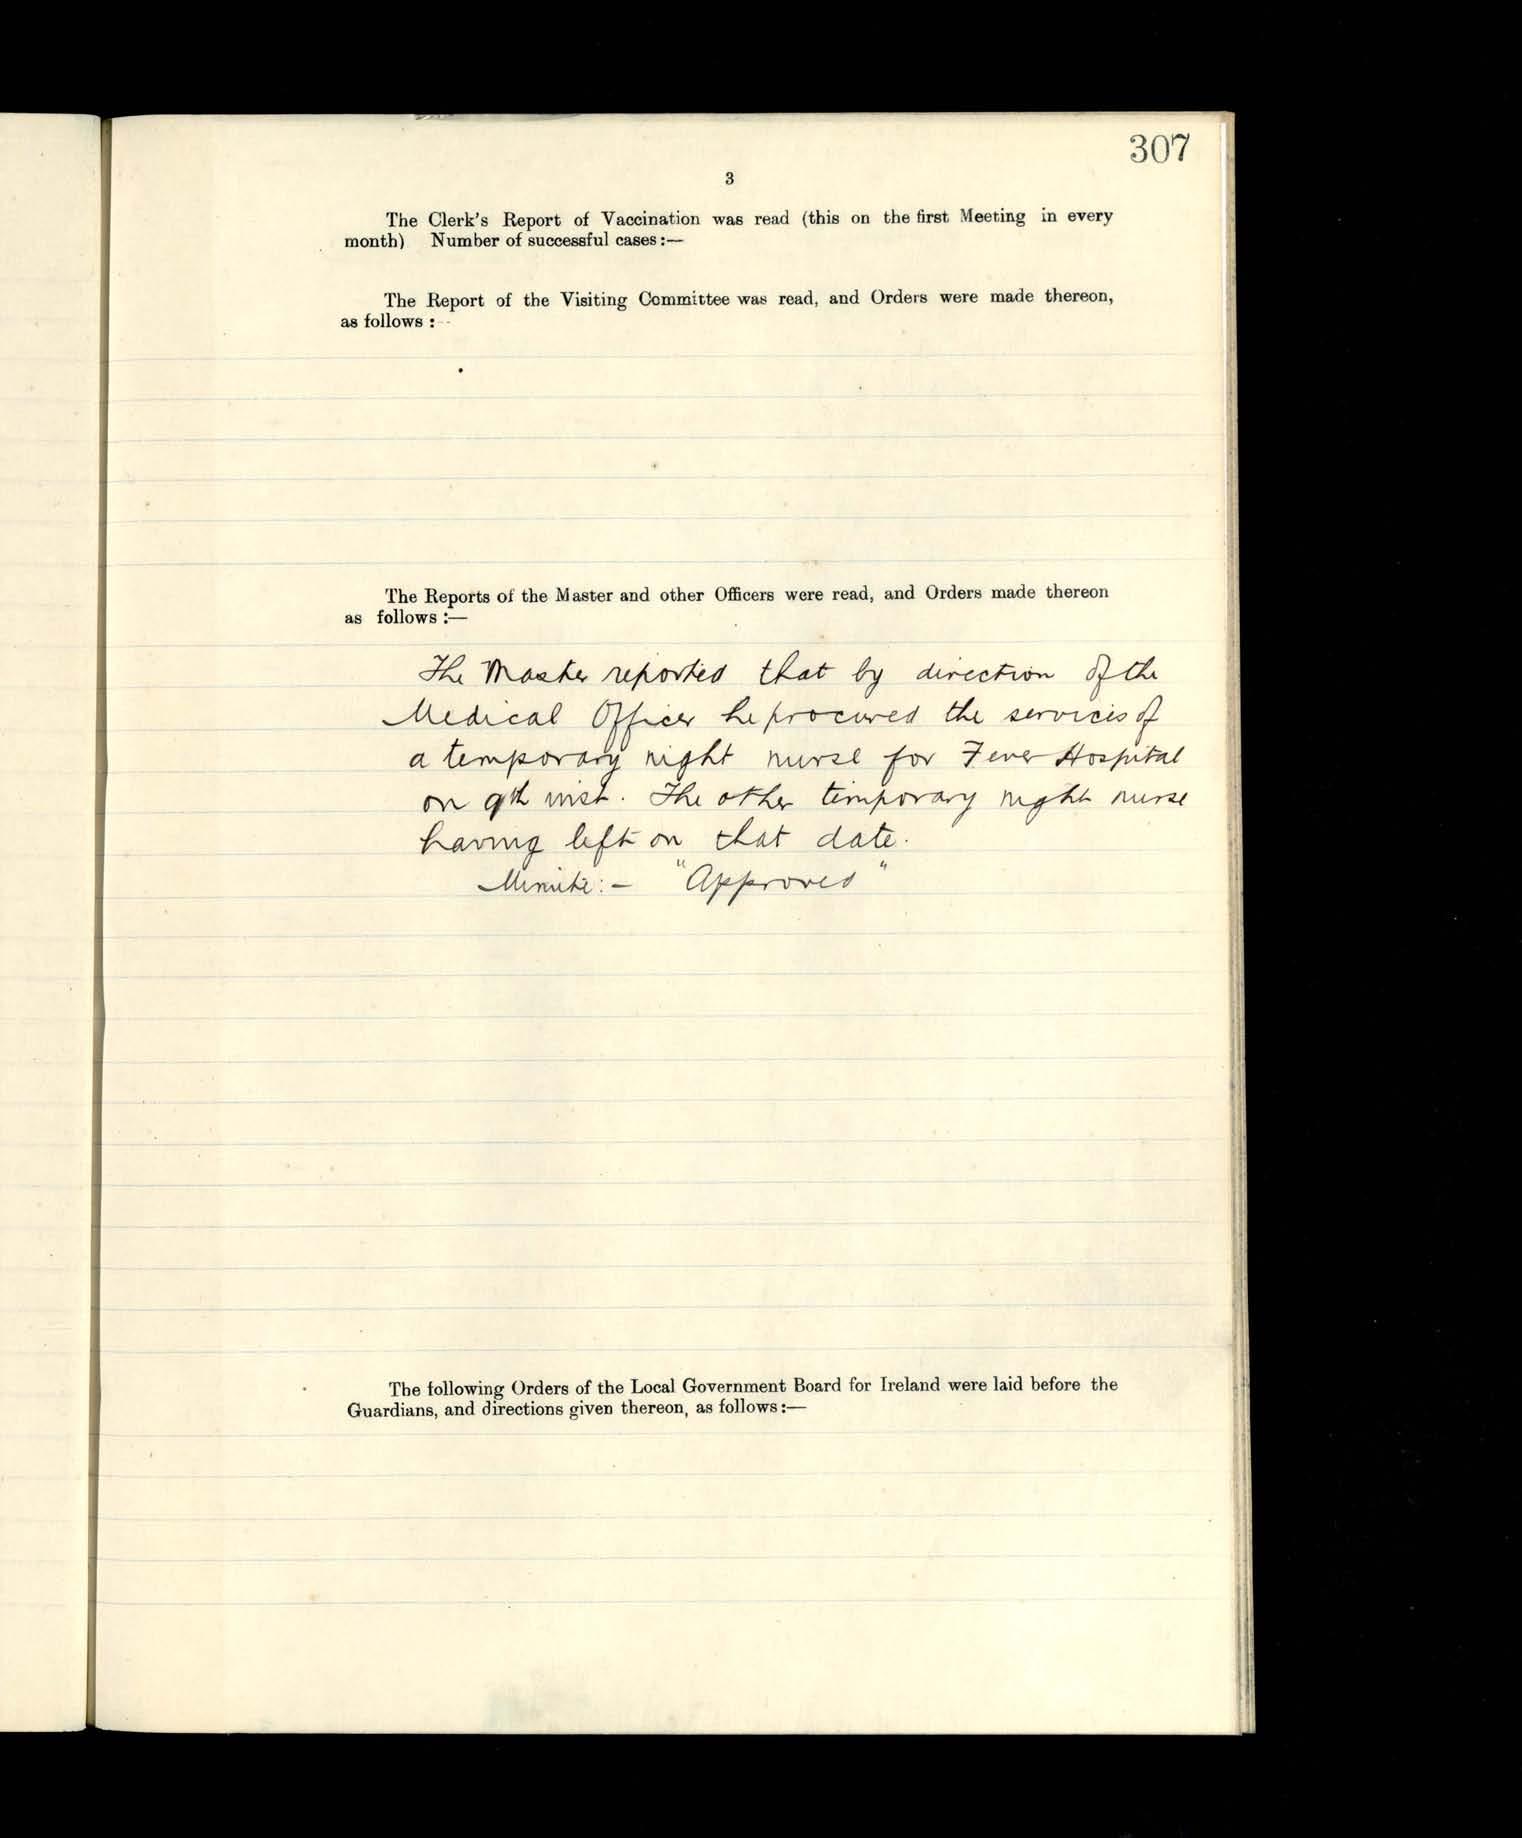 307
3
The Clerk's Report of Vaccination was read (this on the first Meeting in every
month) Number of successful cases:—
The Report of the Visiting Committee was read, and Orders were made thereon,
as follows :--
The Reports of the Master and other Officers were read, and Orders made thereon
as follows :—
The Master reported that by direction of the
Medical Officer he procured the services of
a temporary night nurse for Fever Hospital
on 9th inst. The other temporary night nurse
having left on that date.
Minute:- "Approved"
The following Orders of the Local Government Board for Ireland were laid before the
Guardians, and directions given thereon, as follows:—